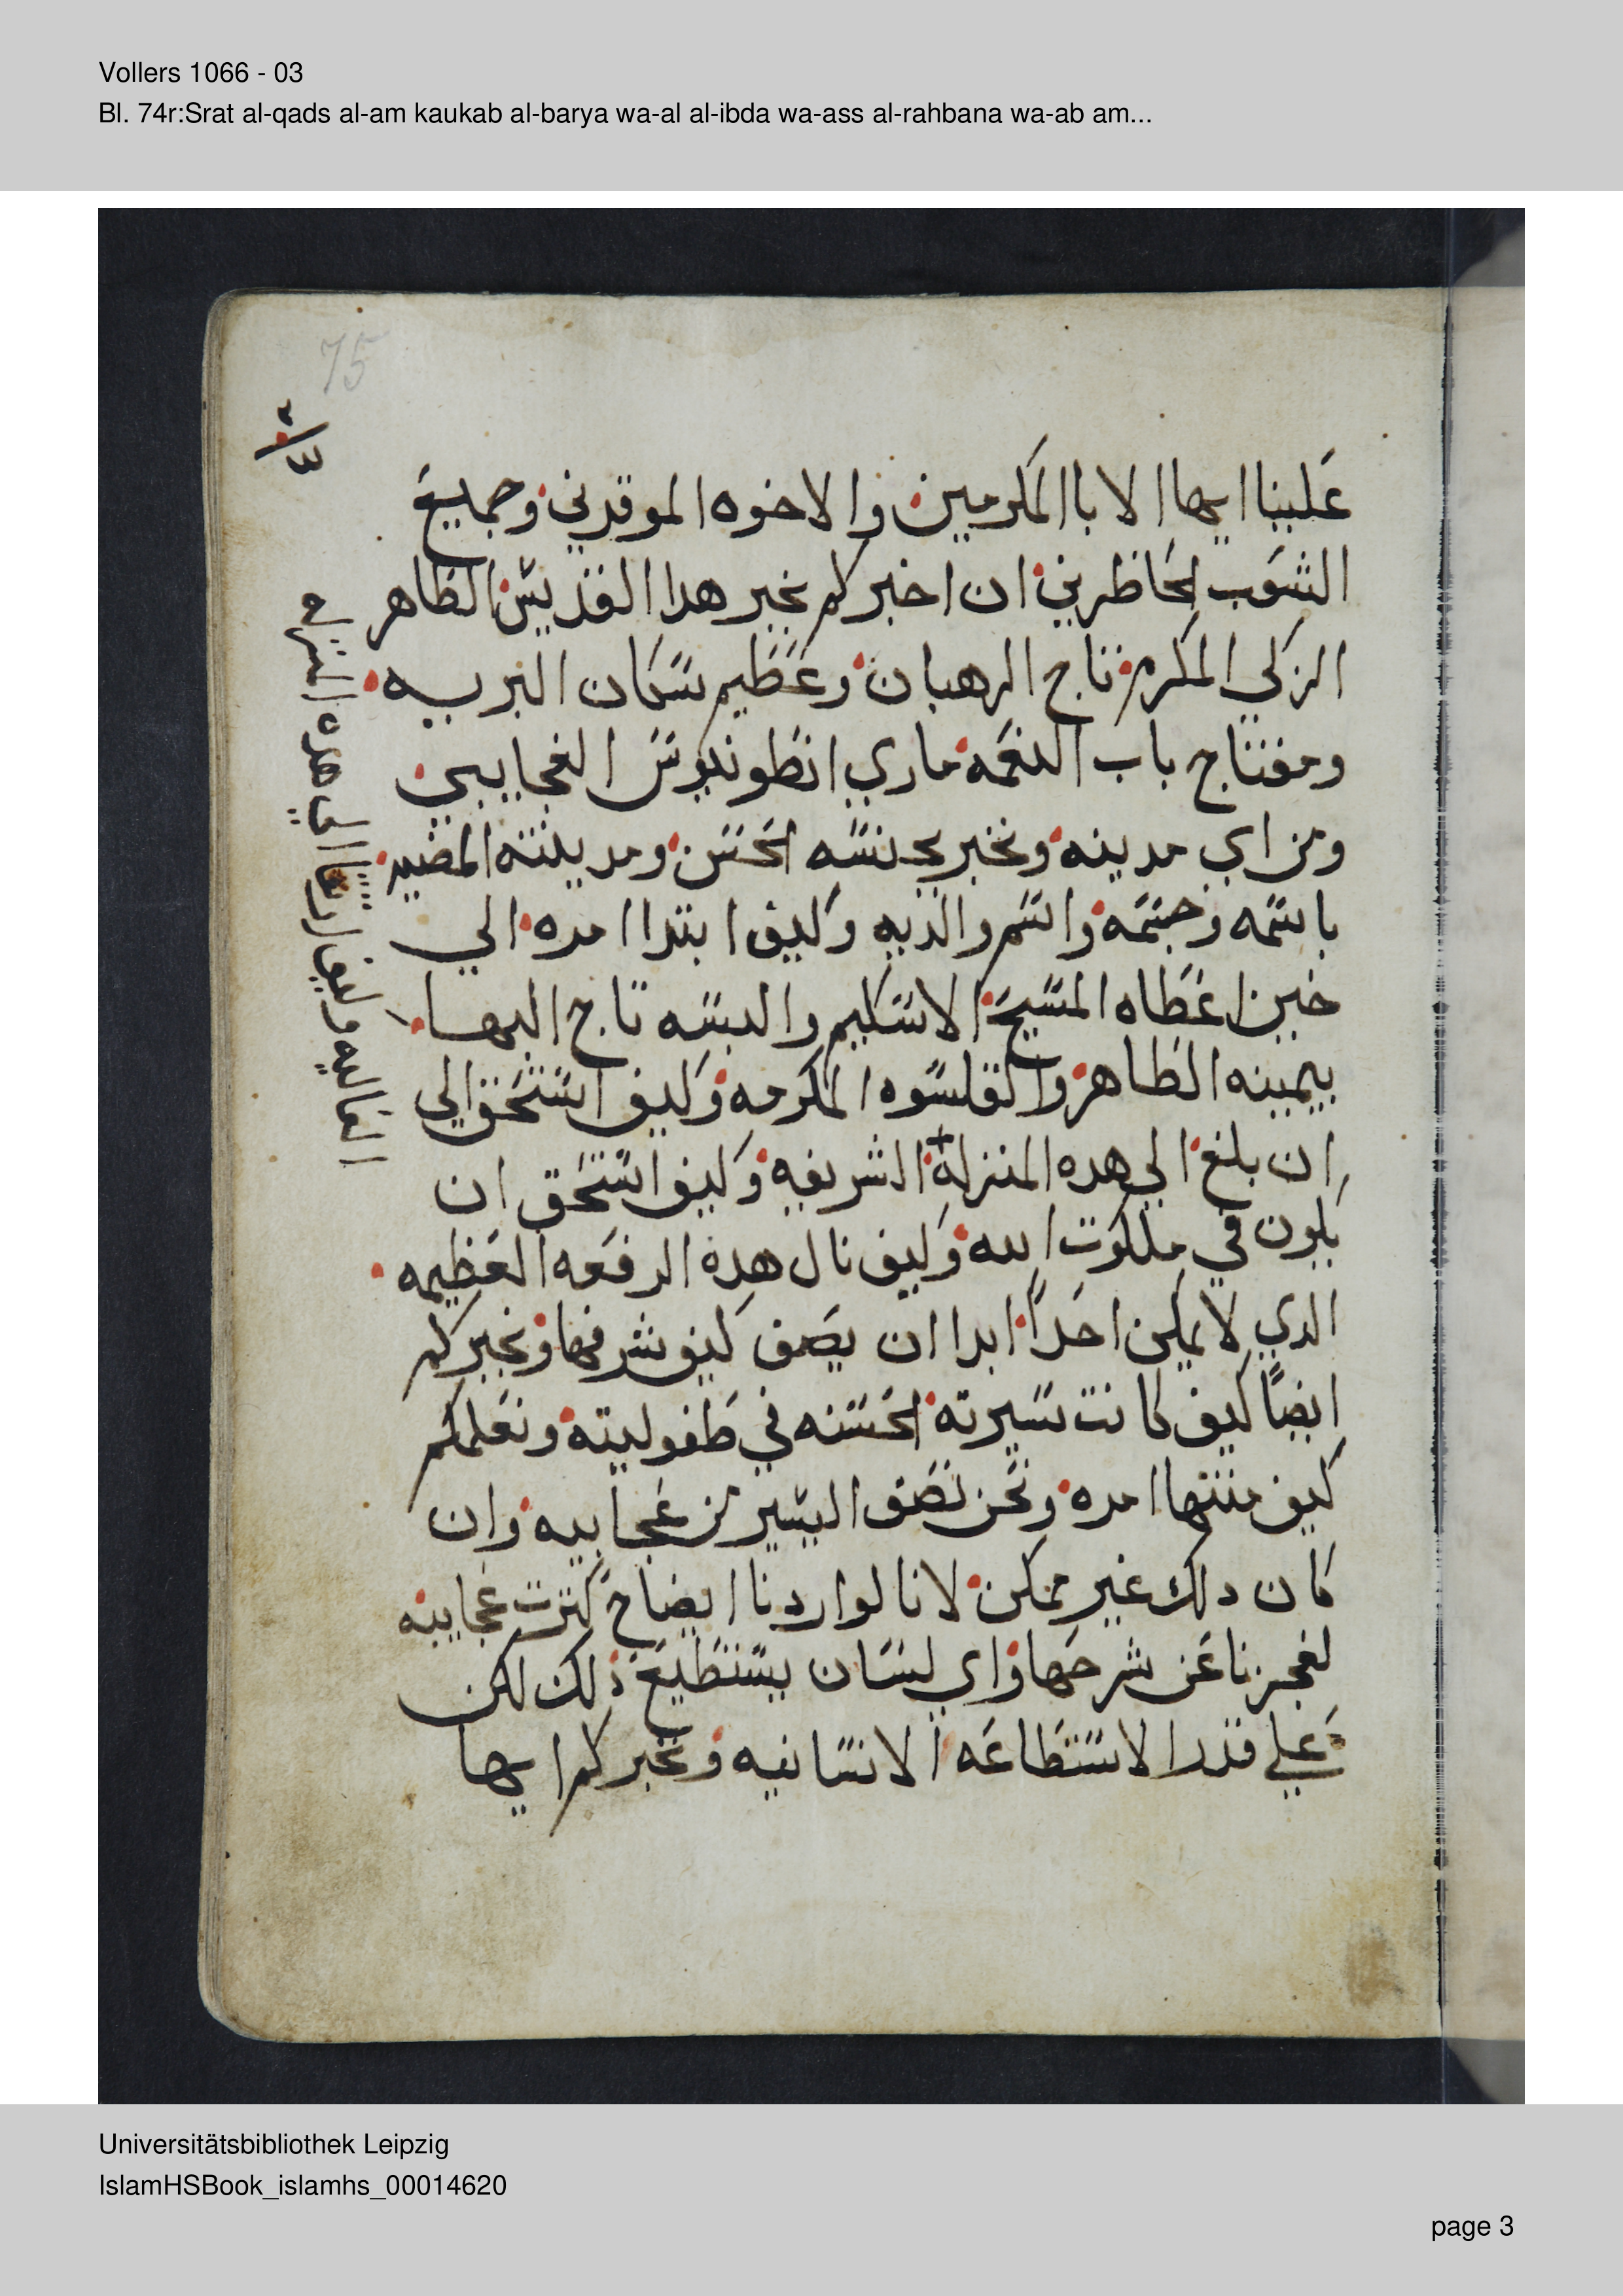 Vollers 1066 - 03
Bl. 74r:Srat al-qads al-am kaukab al-barya wa-al al-ibda wa-ass al-rahbana wa-ab am...
75
علينا ايها الابا المكرمين والاخوه الموقرين وجميع
الشعوب الحاظرين ان اخبركم بخبر هدا القديس الطاهر
الزكي المكرم تاج الرهبان وعظيم سكان البريه
ومفتاح باب النعمه ماري انطونيوس العجايبي
ومن اي مدينه ونخبر بجنسه الحسن ومدينته المضيه
باسمه وجسمه واسم والديه وكيف ابتدا امره الي
حين اعطاه المسيح الاسكيم والبسه تاج البها
بيمينه الطاهره والقلسوه المكرمه وكيف استحق الي
ان بلغ الي هده المنزلة الشريفه وكيف استحق ان
يكون في ملكوت الله وكيف نال هده الرفعه العظيمه
الدي لا يمكن احداً ابدا ان يصف كيف شرفها ونخبركم
ايضاً كيف كانت سيرته الحسنه في طفوليته ونعلمكم
كيف منتها امره ونحن نصف اليسير من عجايبه وان
كان دلك غير ممكن لانا لو اردنا ايضاح كترت عجايبه
لعجزنا عن شرحها واي لسان يستطيع ذلك لكن
على قدر الاستطاعه الانسانيه ونخبركم ايها
العاليه وكيف ارتقا الي هده الدرج
Universitätsbibliothek Leipzig
IslamHSBook_islamhs_00014620
page 3